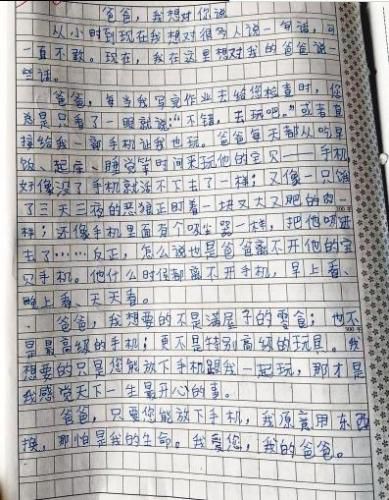 爸爸,我想对你说
从小时到现在我想对很多人说一句话,可
一直不敢。现在,我在这里想对我的爸爸说一
些话。
爸爸,每当我写完作业去给您检查时,您
总是只看了一眼就说:“不错,去玩吧。”或者直
接给我一部手机让我也玩。爸爸每天都从吃早
饭、起床、睡觉等时间来玩他的宝贝——手机,
好像没了手机就活不下去了一样;又像一只饿
了三天三夜的恶狼正盯着一块又大又肥的肉一
样;还像手机里面有个吸尘器一样,把他吸进
去了……反正,怎么说也是爸爸离不开他的宝
贝手机。他什么时候都离不开手机,早上看、
晚上看、天天看。
爸爸,我想要的不是满屋子的零食;也不
是最高级的手机;更不是特别高级的玩具。我
想要的只是您能放下手机跟我一起玩,那才是
我感觉天下一生最开心的事。
爸爸,只要您能放下手机,我愿意用东西
换,那怕是我的生命。我爱您,我的爸爸。
300字